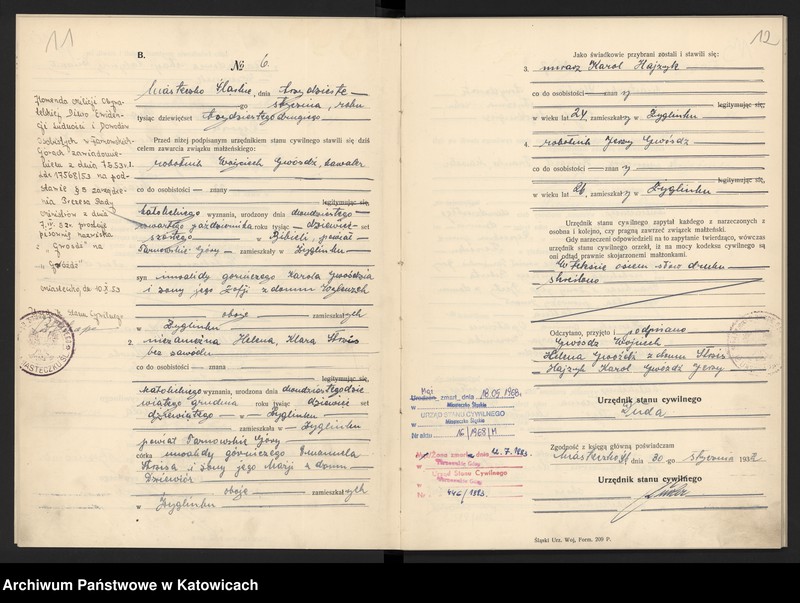 11
B.
№ 6.
Miasteczko Śląskie, dnia trzydzieste-
go stycznia, roku
tysiąc dziewięćset trzydziestego drugiego
Przed niżej podpisanym urzędnikiem stanu cywilnego stawili się dziś
celem zawarcia związku małżeńskiego:
robotnik Wojciech Gwóźdź, kawaler
co do osobistości — znany
legitymując się,
katolickiego wyznania, urodzony dnia dwudziestego
czwartego października roku tysiąc dziewięć- set
szóstego w Bibieli, powiat
Tarnowskie Góry zamieszkały w Żyglinku
syn inwalidy górniczego Karola Gwoździa
i żony jego Zofji z domu
oboje zamieszkałych
w Żyglinku
2. niezamężna Helena, Klara Strois
bez zawodu
co do osobistości — znana
legitymując się,
katolickiego wyznania, urodzona dnia dwudziestego dzie-
wiątego grudnia roku tysiąc dziewięć set
dziewiątego w Żyglinku
zamieszkała w Żyglinku
powiat Tarnowskie Góry
córka inwalidy górniczego Emanuela
Stroisa i żony jego Marji z domu
Dziewiór
oboje zamieszkałych
w Żyglinku
Komenda Milicji Obywa-
telskiej Biuro Ewiden-
cji Ludności i Dowodów
Osobistych w Tarnowskich
Górach zawiadomie-
niem z dnia
17568/53 na pod-
stawie § 3 zarządze-
nia Prezesa Rady
Ministrów z dnia
pisownię nazwiska
"Gwosdz" na
"Gwóźdź"
Miasteczko, dn. 10.X.53
Urzędnik Stanu Cywilnego
12
Jako świadkowie przybrani zostali i stawili się:
3. murarz Karol Hajzyk
co do osobistości — znany
legitymując się,
w wieku lat 24, zamieszkały w Żyglinku
4. robotnik Jerzy Gwóźdź
co do osobistości — znany
legitymując się,
w wieku lat 26, zamieszkały w Żyglinku
Urzędnik stanu cywilnego zapytał każdego z narzeczonych z
osobna i kolejno, czy pragną zawrzeć związek małżeński.
Gdy narzeczeni odpowiedzieli na to zapytanie twierdząco, wówczas
urzędnik stanu cywilnego orzekł, iż na mocy kodeksu cywilnego są
oni odtąd prawnie skojarzonemi małżonkami.
W tekście osiem słów druku
skreślono
Odczytano, przyjęto i podpisano
Gwóźdź Wojciech
Helena Gwóźdź z domu Strois
Hajzyk Karol Gwóźdź Jerzy
Urzędnik stanu cywilnego
Duda
Zgodność z księgą główną poświadczam
Miasteczko Śl. dnia 30-go stycznia 1932
Urzędnik stanu cywilnego
Mąż
zmarł, dnia 18.09.1968r.
w Miasteczko Śląskie
URZĄD STANU CYWILNEGO
Miasteczko Śląskie
Nr aktu 16/1968/M
Żona zmarła dnia 12.7.1983.
w Tarnowskie Góry
Urząd Stanu Cywilnego
w Tarnowskie Góry
Nr 446/1983.
Śląski Urz. Woj. Form. 209 P.
Archiwum Państwowe w Katowicach